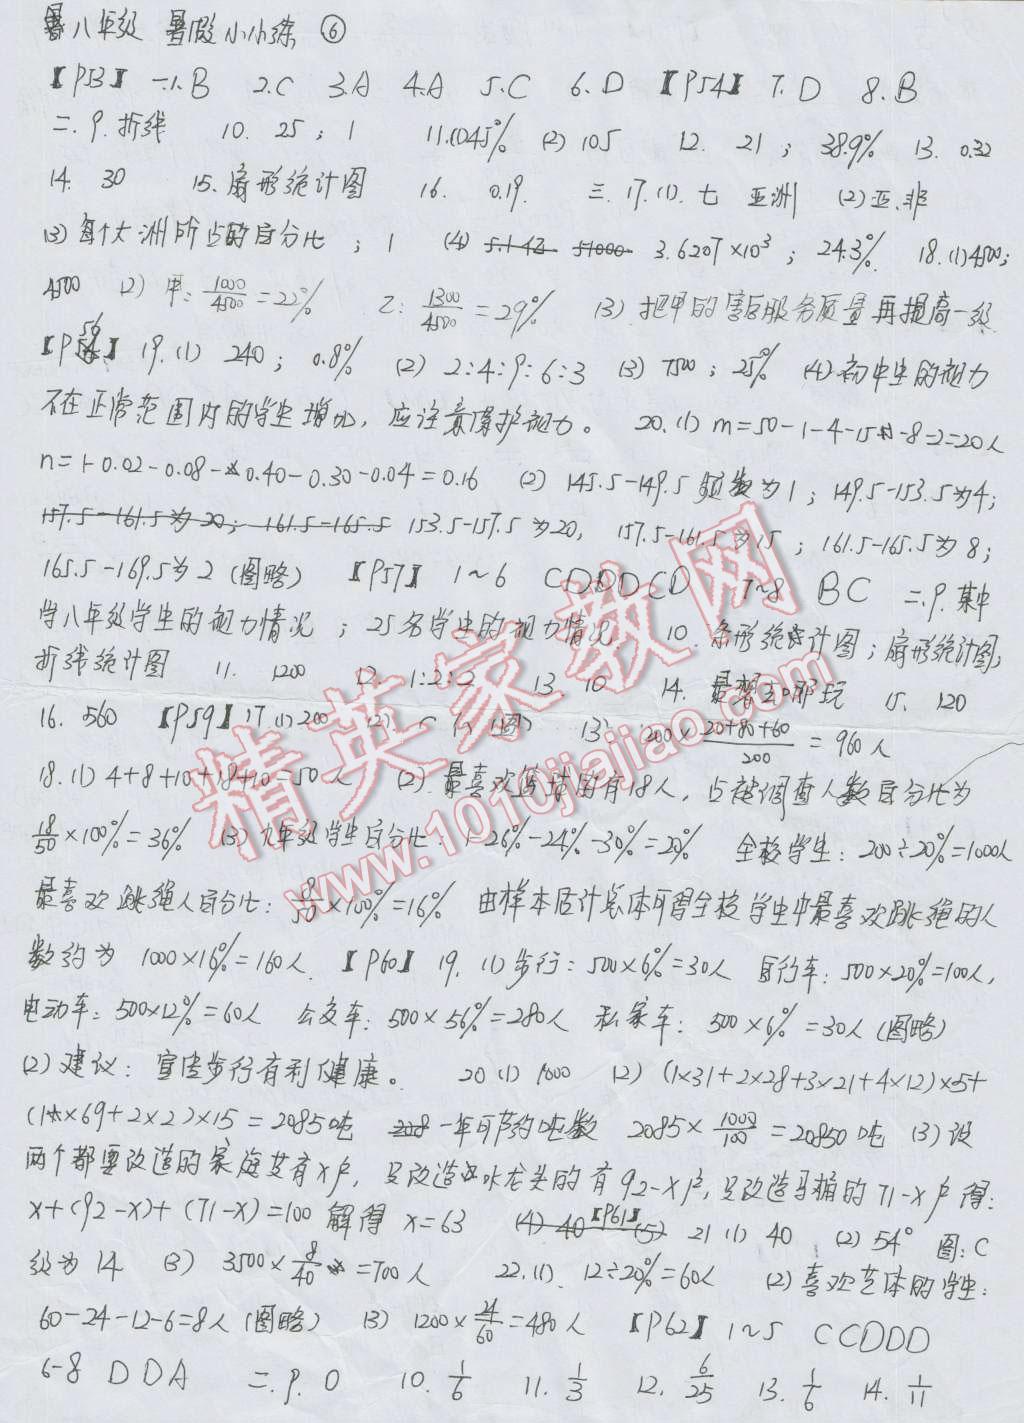 八年级 暑假小小练 ⑥
【P53】 一.1.B 2.C 3.A 4.A 5.C 6.D 【P54】 7.D 8.B
二.9.折线 10. 25；1 11.(1)45% (2) 105 12. 21；38.9% 13. 0.32
14. 30 15.扇形统计图 16. 0.19. 三.17.(1).七 亚洲 (2)亚.非
(3)每个大洲所占的百分比；1 (4) 3.6207×10³；24.3%. 18.(1)4500;
4500 (2) 甲: 1000/4500=22% 乙: 1300/4500=29% (3) 把甲的售后服务质量再提高一级
【P56】 19.(1) 240；0.8% (2) 2:4:9:6:3 (3) 7500；25% (4)初中生的视力
不在正常范围内的学生增加，应注意保护视力。 20.(1) m=50-1-4-15-8-2=20人
n=1-0.02-0.08-0.40-0.30-0.04=0.16 (2) 145.5-149.5频数为1；149.5-153.5为4;
157.5-161.5为20；161.5-165.5 153.5-157.5为20, 157.5-161.5为15；161.5-165.5为8;
165.5-169.5为2 (图略) 【P57】 1~6 CDDDCD 7~8 BC 二.9.某中
学八年级学生的视力情况；25名学生的视力情况 10.条形统计图；扇形统计图;
折线统计图 11. 1200 12. 1:2:2 13. 10 14. 最想去哪玩 15. 120
16. 560 【P59】17.(1)200 (2) C (图) (3) 200×(20+80+60)/200=960人
18.(1) 4+8+10+18+10=50人 (2).最喜欢篮球的有18人，占被调查人数百分比为
18/50×100%=36% (3)九年级学生百分比: 1-26%-24%-30%=20% 全校学生: 200÷20%=1000人
最喜欢跳绳人百分比: 8/50×100%=16% 由样本估计总体可得全校学生中最喜欢跳绳的人
数约为 1000×16%=160人. 【P60】 19.(1)步行: 500×6%=30人 自行车: 500×20%=100人,
电动车: 500×12%=60人 公交车: 500×56%=280人 私家车: 500×6%=30人(图略)
(2)建议: 宣传步行有利健康。 20(1) 1000 (2) (1×31+2×28+3×21+4×12)×5+
(1×69+2×2)×15=2085吨 一年可节约吨数 2085×1000/100=20850吨 (3)设
两个都要改造的家庭共有x户，只改造水龙头的有92-x户，只改造马桶的71-x户 得:
x+(92-x)+(71-x)=100 解得 x=63 (4) 40 【P61】 (5) 21(1) 40 (2) 54° 图: C
级为14 (3) 3500×8/40=700人 22.(1). 12÷20%=60人 (2)喜欢艺体的学生:
60-24-12-6=8人 (图略) (3) 1200×24/60=480人 【P62】 1~5 CCDDD
6-8 DDA 二.9. 0 10. 1/6 11. 1/3 12. 6/25 13. 1/6 14. 1/11
精英家教网
www.1010jiajiao.com